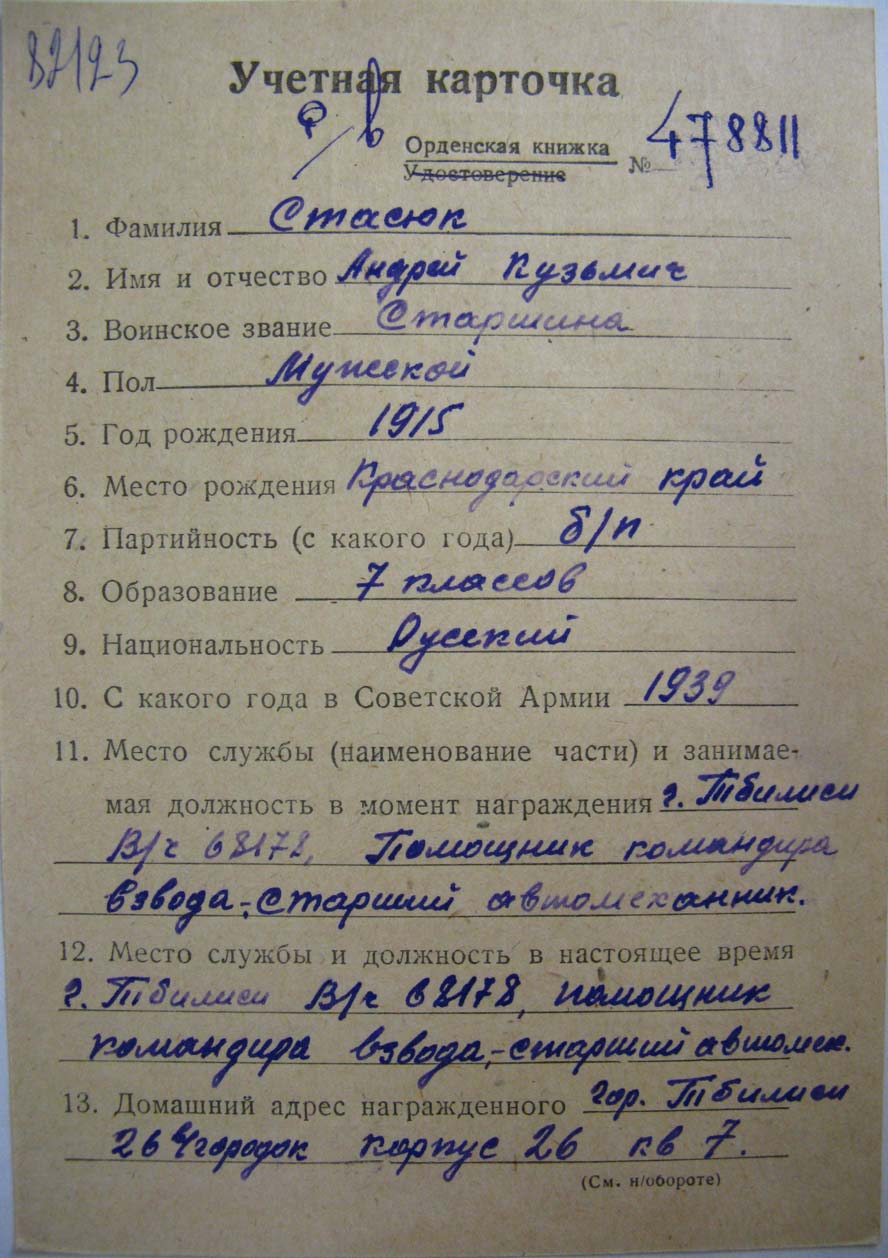 82123
Учетная карточка
Орденская книжка
Удостоверение
№ 478811
1. Фамилия Стасюк
2. Имя и отчество Андрей Кузьмич
3. Воинское звание Старшина
4. Пол Мужской
5. Год рождения 1915
6. Место рождения Краснодарский край
7. Партийность (с какого года) б/п
8. Образование 7 классов
9. Национальность Русский
10. С какого года в Советской Армии 1939
11. Место службы (наименование части) и занимае-
мая должность в момент награждения г. Тбилиси
В/ч 68178, Помощник командира
взвода,-старший автомеханник.
12. Место службы и должность в настоящее время
г. Тбилиси В/ч 68178, помощник
командира взвода,-старший автомех.
13. Домашний адрес награжденного Гор. Тбилиси
26 городок корпус 26 кв 7.
(См. н/обороте)